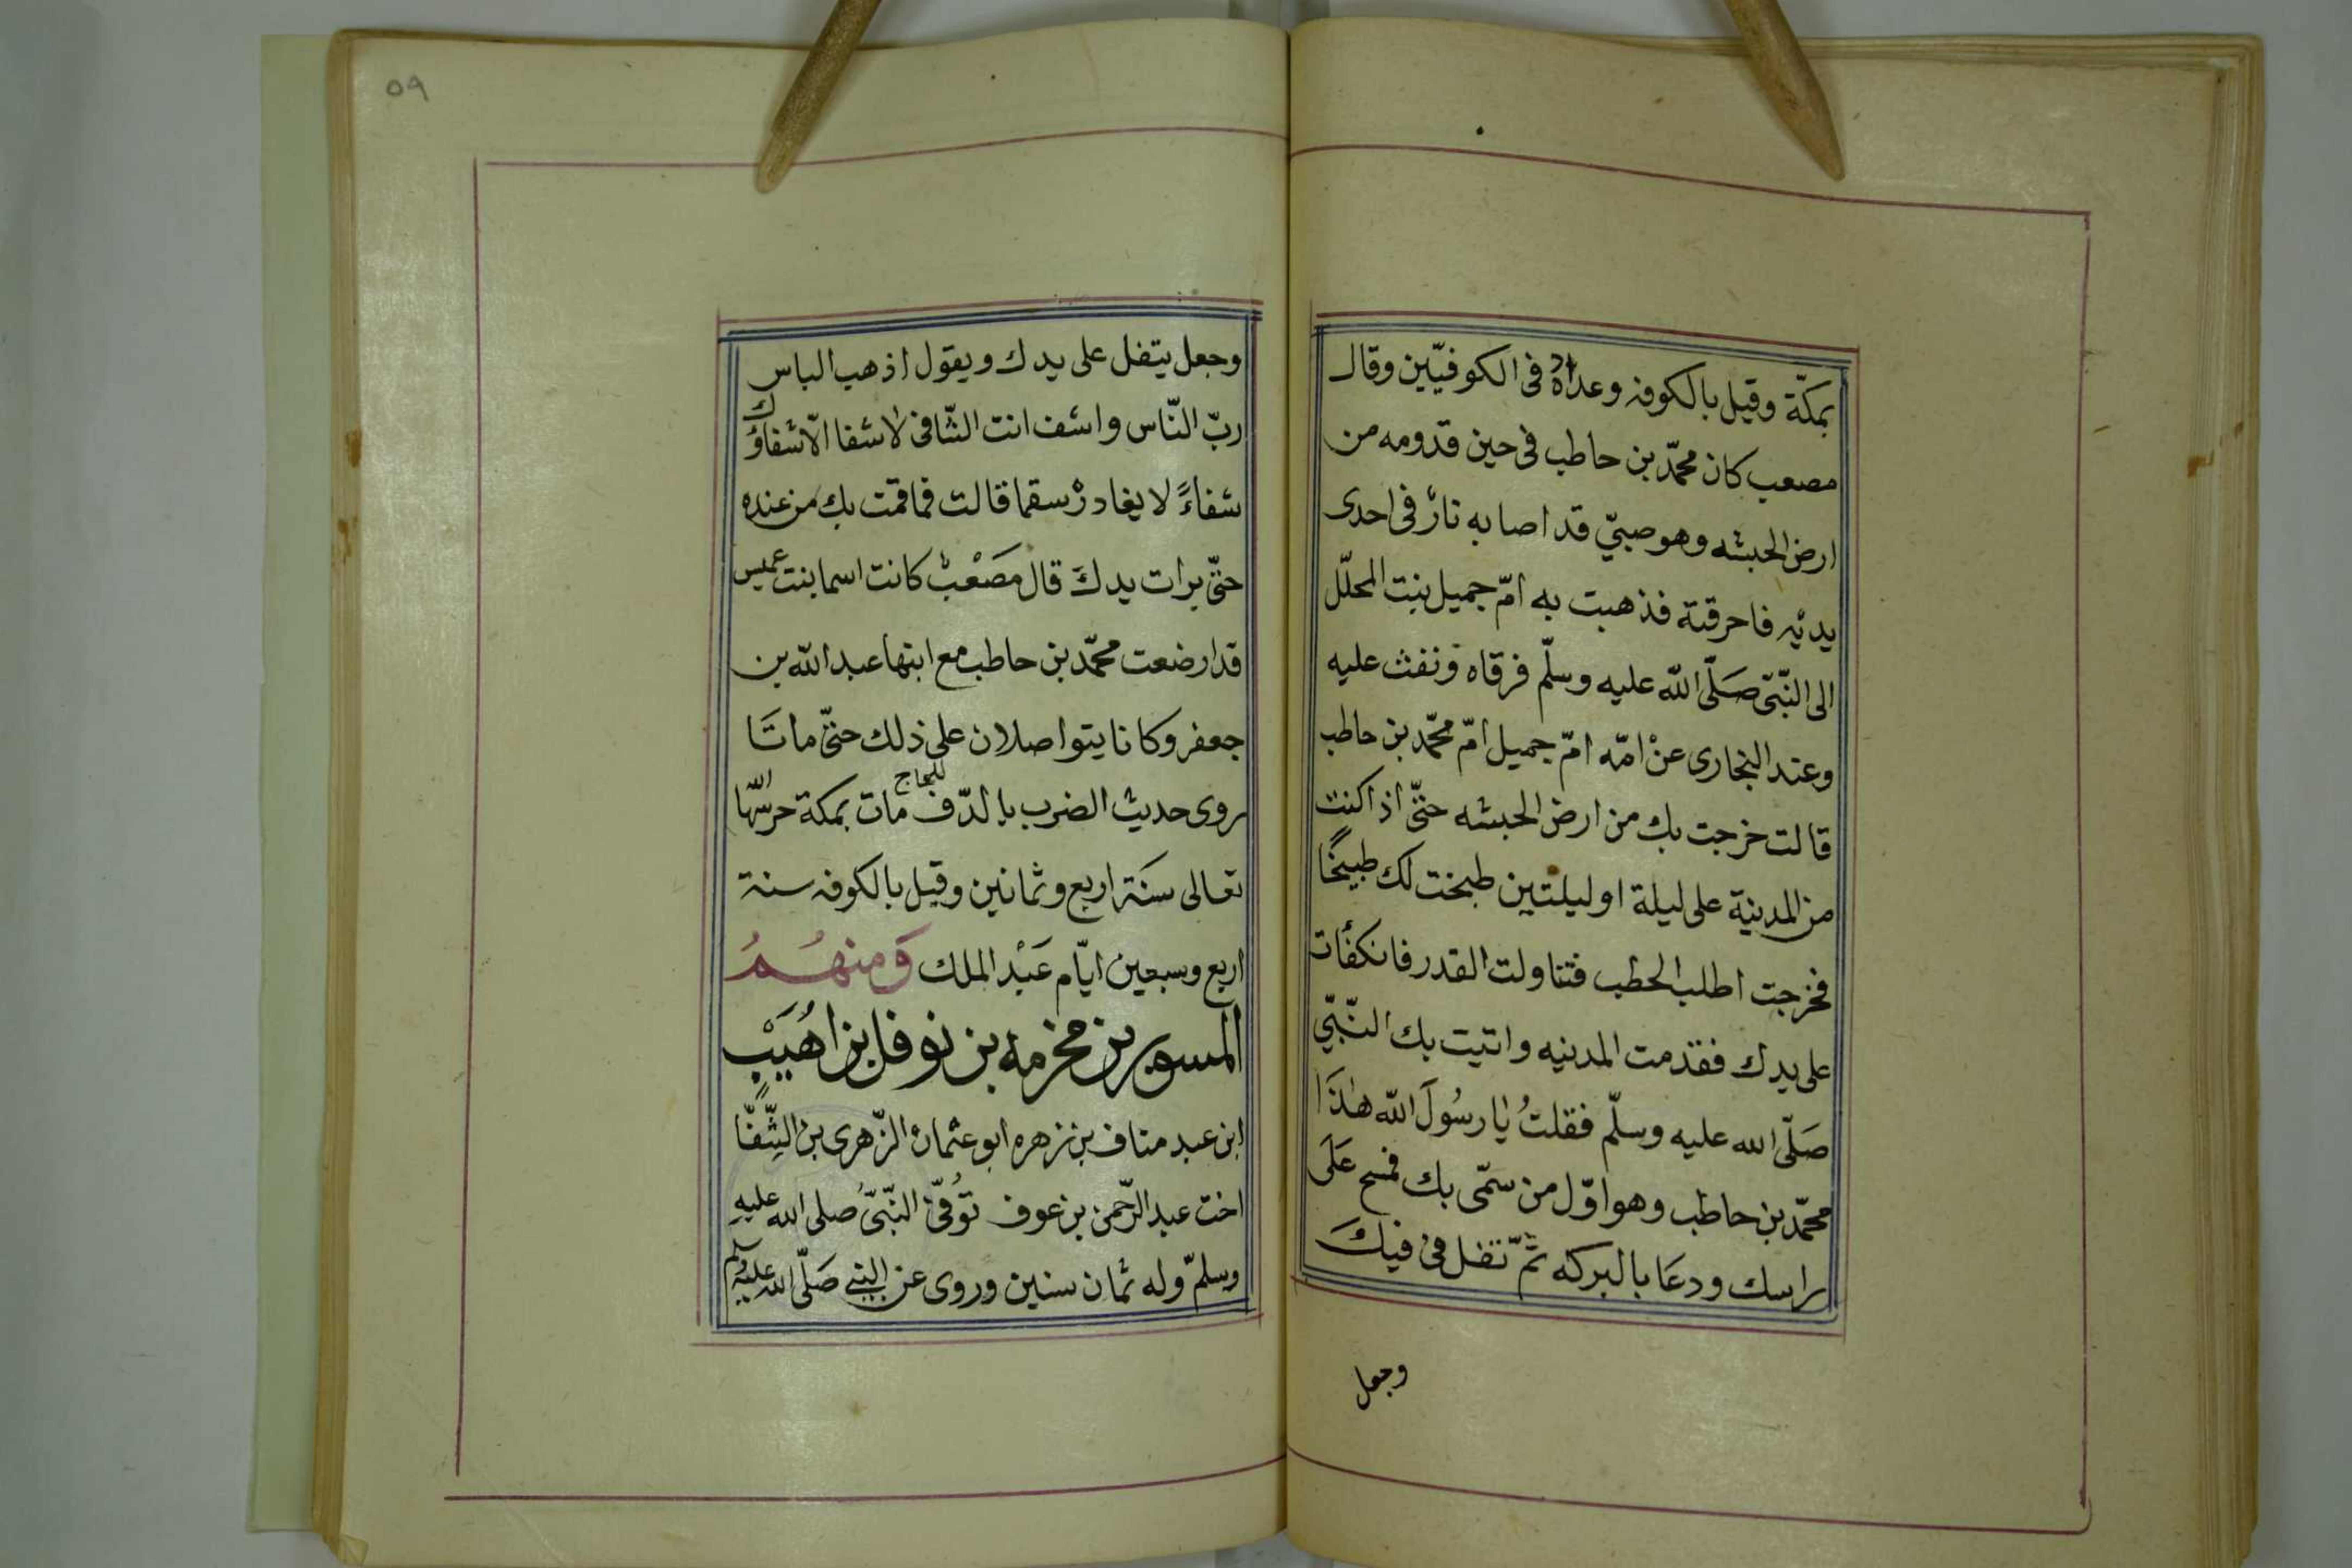 بمكّة وقيل بالكوفه وعداده فى الكوفيّين وقال
مصعب كان محمّد بن حاطب فى حين قدومه من
ارض الحبشه وهو صبيّ قد اصابه نارٌ فى احدى
يديْه فاحرقتة فذهبت به امّ جميل بنت المحلّل
الى النّبّى صَلّى الله عليه وسلّم فرقاه ونفث عليه
وعند البخارى عنْ امّه امّ جميل امّ محمّد بن حاطب
قالت خرجت بك من ارض الحبشه حتّى اذا كنت
من المدينة على ليلة او ليلتين طبخت لك طبيخًا
فخرجت اطلب الحطب فتناولت القدر فانكفأت
على يدك فقدمت المدينه واتيت بك النّبّي
صَلّى الله عليه وسلّم فقلتُ يا رسُولَ الله هٰذَا
محمّد بن حاطب وهو اوّل من سمّى بك فمسح عَلَى
راسك ودعَا بالبركه ثمّ تفل فى فيكَ
وجعل
٥٩
وجعل يتفل على يدك ويقول اذهب الباس
ربّ النّاس واشف انت الشّافى لا شفا الّا شفاؤك
شفاءً لا يغادرْ سقما قالت فما قمت بك من عنده
حتّى برات يدكَ قال مصَعْبْ كانت اسما بنت عميس
قد ارضعت محمّد بن حاطب مع ابنها عبد الله بن
جعفر وكانا يتواصلان على ذلك حتّى ماتَا
روى حديث الضرب بالدّف للنكاح مات بمكة حرسّها الله
تعالى سنَة اربع وثمانين وقيل بالكوفه سنة
اربع وسبعين ايّام عَبْد الملك وَمنهُمُ
المسور بن مخرمه بن نوفل بن اهُيَبْ
ابن عبد مناف بن زهره ابو عثمان الزّهرى بن الشِّفّا
اخت عبد الرّحمن بن عوف توُفّىَ النّبّىُ صلى الله عليهِ
وسلمّ وله ثمان سنين وروى عن النبي صَلّى الله عليه وسلم